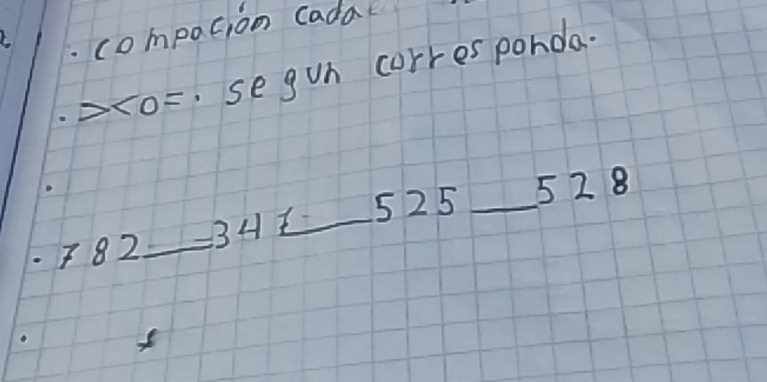 . compación cada
. ><o=. segun corresponda.
. 782___341___525___528